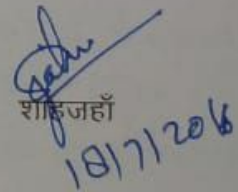 शाहजहाँ
18/7/2016